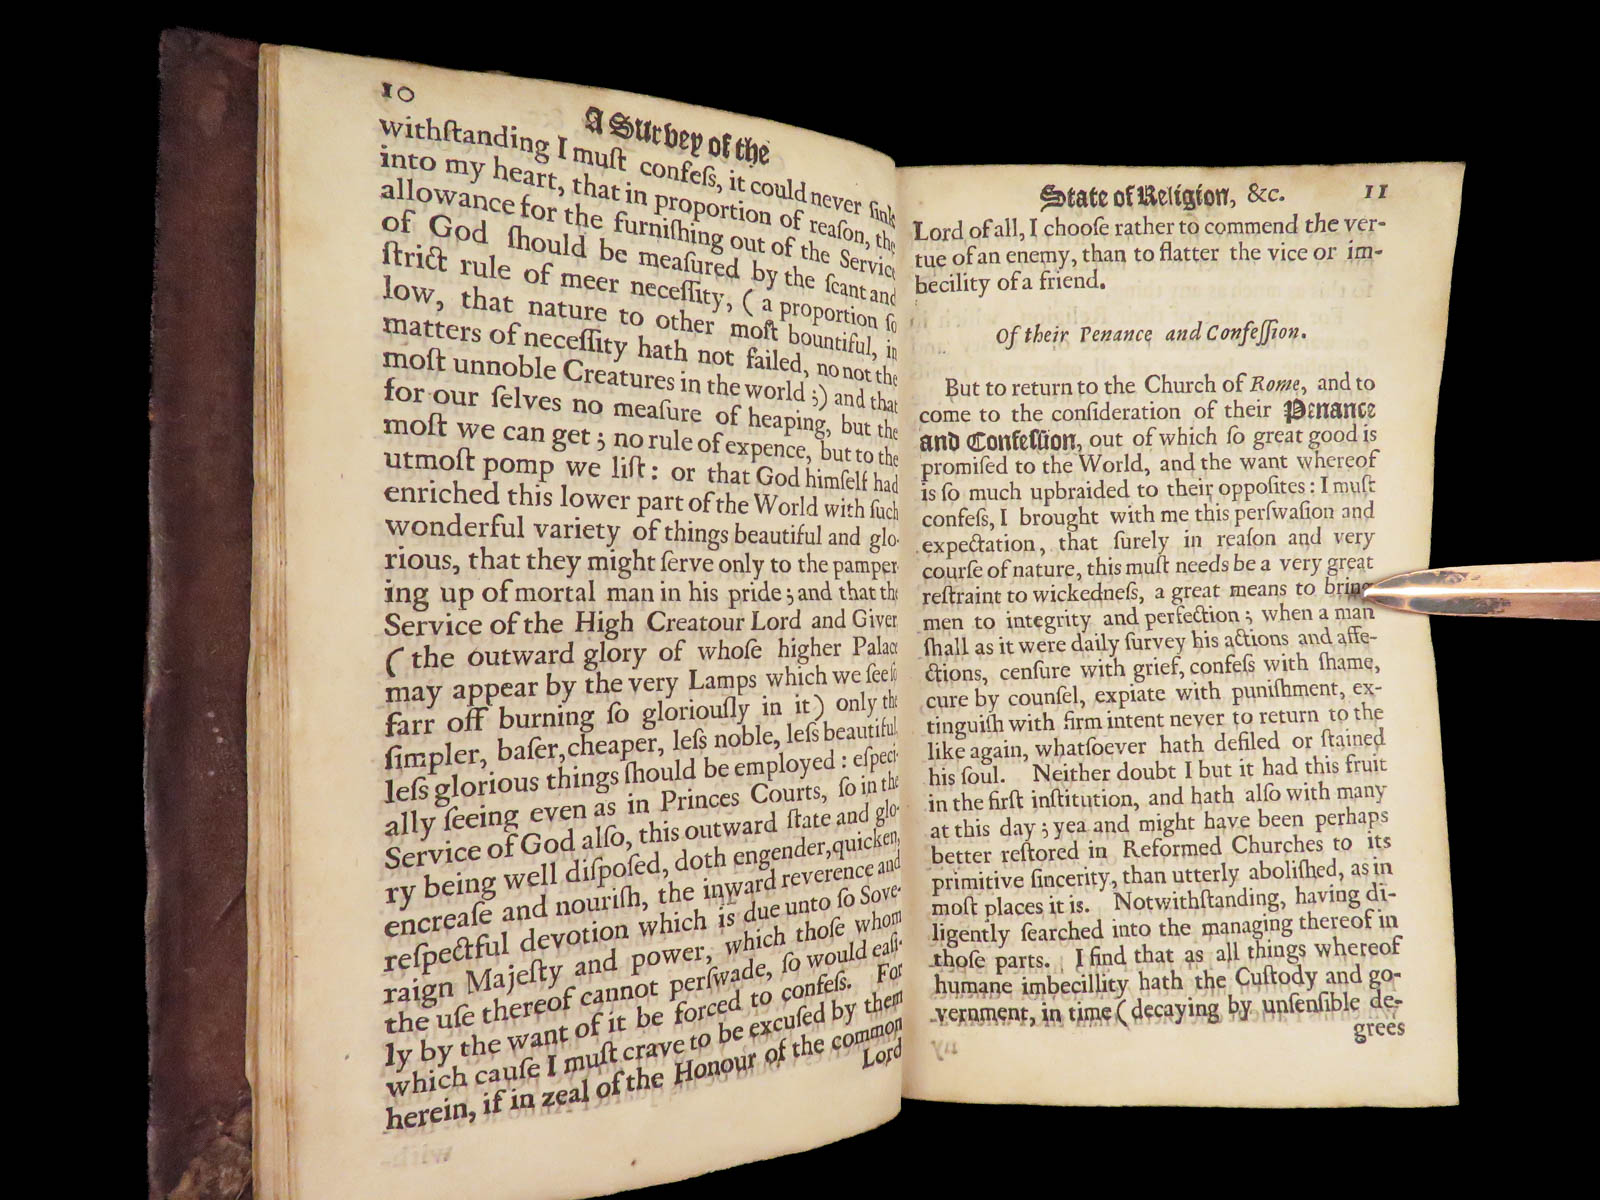 10
A Survey of the
withſtanding I muſt confeſs, it could never ſink
into my heart, that in proportion of reaſon, the
allowance for the furniſhing out of the Service
of God ſhould be meaſured by the ſcant and
ſtrict rule of meer neceſſity, ( a proportion ſo
low, that nature to other moſt bountiful, in
matters of neceſſity hath not failed, no not the
moſt unnoble Creatures in the world ;) and that
for our ſelves no meaſure of heaping, but the
moſt we can get ; no rule of expence, but to the
utmoſt pomp we liſt : or that God himſelf had
enriched this lower part of the World with ſuch
wonderful variety of things beautiful and glo-
rious, that they might ſerve only to the pamper
ing up of mortal man in his pride ; and that the
Service of the High Creatour Lord and Giver
( the outward glory of whoſe higher Palace
may appear by the very Lamps which we ſee ſo
farr off burning ſo gloriouſly in it) only the
ſimpler, baſer, cheaper, leſs noble, leſs beautiful,
leſs glorious things ſhould be employed : eſpeci-
ally ſeeing even as in Princes Courts, ſo in the
Service of God alſo, this outward ſtate and glo-
ry being well diſpoſed, doth engender, quicken,
encreaſe and nouriſh, the inward reverence and
reſpectful devotion which is due unto ſo Sove-
raign Majeſty and power, which thoſe whom
the uſe thereof cannot perſwade, ſo would eaſi-
ly by the want of it be forced to confeſs. For
which cauſe I muſt crave to be excuſed by them
herein, if in zeal of the Honour of the common
Lord
State of Religion, &c. 11
Lord of all, I chooſe rather to commend the ver-
tue of an enemy, than to flatter the vice or im-
becility of a friend.
Of their Penance and Confeſſion.
But to return to the Church of Rome, and to
come to the conſideration of their Penance
and Confeſſion, out of which ſo great good is
promiſed to the World, and the want whereof
is ſo much upbraided to their oppoſites : I muſt
confeſs, I brought with me this perſwaſion and
expectation, that ſurely in reaſon and very
courſe of nature, this muſt needs be a very great
reſtraint to wickedneſs, a great means to bring
men to integrity and perfection ; when a man
ſhall as it were daily ſurvey his actions and affe-
ctions, cenſure with grief, confeſs with ſhame,
cure by counſel, expiate with puniſhment, ex-
tinguiſh with firm intent never to return to the
like again, whatſoever hath defiled or ſtained
his ſoul. Neither doubt I but it had this fruit
in the firſt inſtitution, and hath alſo with many
at this day ; yea and might have been perhaps
better reſtored in Reformed Churches to its
primitive ſincerity, than utterly aboliſhed, as in
moſt places it is. Notwithſtanding, having di-
ligently ſearched into the managing thereof in
thoſe parts. I find that as all things whereof
humane imbecillity hath the Cuſtody and go-
vernment, in time ( decaying by unſenſible de-
grees